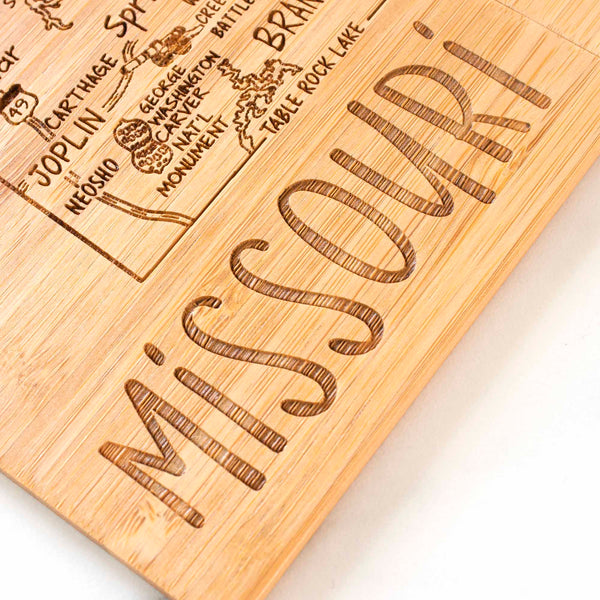 CREE
BATTLE
Spr
BRAN
ar
CARTHAGE
GEORGE
WASHINGTON
CARVER
NAT'L
MONUMENT
TABLE ROCK LAKE
49
JOPLIN
NEOSHO
MiSSOURi